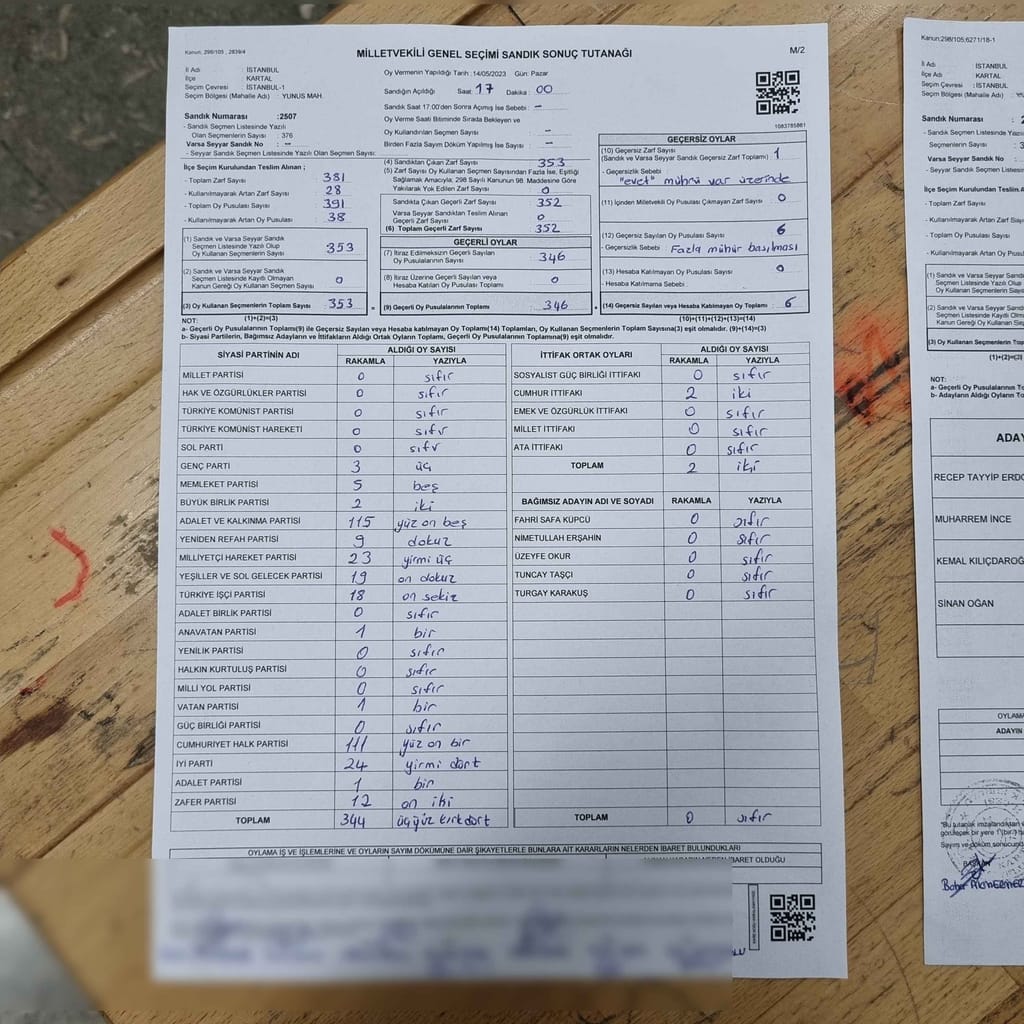 Kanun: 298/105 , 2839/4
MİLLETVEKİLİ GENEL SEÇİMİ SANDIK SONUÇ TUTANAĞI
M/2
İl Adı : İSTANBUL
İlçe : KARTAL
Seçim Çevresi : İSTANBUL-1
Seçim Bölgesi (Mahalle Adı) : YUNUS MAH.
Oy Vermenin Yapıldığı Tarih :14/05/2023 Gün: Pazar
Sandığın Açıldığı Saat: 17 Dakika : 00
Sandık Saat 17.00'den Sonra Açılmış İse Sebebi : -
Oy Verme Saati Bitiminde Sırada Bekleyen ve
Oy Kullandırılan Seçmen Sayısı : -
Birden Fazla Sayım Döküm Yapılmış İse Sayısı : -
1083785861
Sandık Numarası :2507
- Sandık Seçmen Listesinde Yazılı
Olan Seçmenlerin Sayısı : 376
Varsa Seyyar Sandık No : -
- Seyyar Sandık Seçmen Listesinde Yazılı Olan Seçmen Sayısı:
İlçe Seçim Kurulundan Teslim Alınan ;
- Toplam Zarf Sayısı : 381
- Kullanılmayarak Artan Zarf Sayısı : 28
- Toplam Oy Pusulası Sayısı : 391
- Kullanılmayarak Artan Oy Pusulası : 38
(1) Sandık ve Varsa Seyyar Sandık
Seçmen Listesinde Yazılı Olup
Oy Kullanan Seçmenlerin Sayısı : 353
(2) Sandık ve Varsa Seyyar Sandık
Seçmen Listesinde Kayıtlı Olmayan
Kanun Gereği Oy Kullanan Seçmen Sayısı : 0
(3) Oy Kullanan Seçmenlerin Toplam Sayısı : 353
(1)+(2)=(3)
(4) Sandıktan Çıkan Zarf Sayısı : 353
(5) Zarf Sayısı Oy Kullanan Seçmen Sayısından Fazla İse, Eşitliği
Sağlamak Amacıyla, 298 Sayılı Kanunun 98. Maddesine Göre
Yakılarak Yok Edilen Zarf Sayısı : 0
Sandıkta Çıkan Geçerli Zarf Sayısı : 352
Varsa Seyyar Sandıktan Teslim Alınan
Geçerli Zarf Sayısı : 0
(6) Toplam Geçerli Zarf Sayısı : 352
GEÇERLİ OYLAR
(7) İtiraz Edilmeksizin Geçerli Sayılan
Oy Pusulalarının Sayısı : 346
(8) İtiraz Üzerine Geçerli Sayılan veya
Hesaba Katılan Oy Pusulası Toplamı : 0
(9) Geçerli Oy Pusulalarının Toplamı : 346
GEÇERSİZ OYLAR
(10) Geçersiz Zarf Sayısı
(Sandık ve Varsa Seyyar Sandık Geçersiz Zarf Toplamı) : 1
- Geçersizlik Sebebi :
"evet" mührü var üzerinde
(11) İçinden Milletvekili Oy Pusulası Çıkmayan Zarf Sayısı : 0
(12) Geçersiz Sayılan Oy Pusulası Sayısı : 6
- Geçersizlik Sebebi : Fazla mühür basılması
(13) Hesaba Katılmayan Oy Pusulası Sayısı : 0
- Hesaba Katılmama Sebebi :
(14) Geçersiz Sayılan veya Hesaba Katılmayan Oy Toplamı : 6
(10)+(11)+(12)+(13)=(14)
NOT:
a- Geçerli Oy Pusulalarının Toplamı(9) ile Geçersiz Sayılan veya Hesaba katılmayan Oy Toplamı(14) Toplamları, Oy Kullanan Seçmenlerin Toplam Sayısına(3) eşit olmalıdır. (9)+(14)=(3)
b- Siyasi Partilerin, Bağımsız Adayların ve İttifakların Aldığı Ortak Oyların Toplamı, Geçerli Oy Pusulalarının Toplamına(9) eşit olmalıdır.
SİYASİ PARTİNİN ADI ALDIĞI OY SAYISI
RAKAMLA YAZIYLA
MİLLET PARTİSİ 0 sıfır
HAK VE ÖZGÜRLÜKLER PARTİSİ 0 sıfır
TÜRKİYE KOMÜNİST PARTİSİ 0 sıfır
TÜRKİYE KOMÜNİST HAREKETİ 0 sıfır
SOL PARTİ 0 sıfır
GENÇ PARTİ 3 üç
MEMLEKET PARTİSİ 5 beş
BÜYÜK BİRLİK PARTİSİ 2 iki
ADALET VE KALKINMA PARTİSİ 115 yüz on beş
YENİDEN REFAH PARTİSİ 9 dokuz
MİLLİYETÇİ HAREKET PARTİSİ 23 yirmi üç
YEŞİLLER VE SOL GELECEK PARTİSİ 19 on dokuz
TÜRKİYE İŞÇİ PARTİSİ 18 on sekiz
ADALET BİRLİK PARTİSİ 0 sıfır
ANAVATAN PARTİSİ 1 bir
YENİLİK PARTİSİ 0 sıfır
HALKIN KURTULUŞ PARTİSİ 0 sıfır
MİLLİ YOL PARTİSİ 0 sıfır
VATAN PARTİSİ 1 bir
GÜÇ BİRLİĞİ PARTİSİ 0 sıfır
CUMHURİYET HALK PARTİSİ 111 yüz on bir
İYİ PARTİ 24 yirmi dört
ADALET PARTİSİ 1 bir
ZAFER PARTİSİ 12 on iki
TOPLAM 344 üçyüz kırkdört
İTTİFAK ORTAK OYLARI ALDIĞI OY SAYISI
RAKAMLA YAZIYLA
SOSYALİST GÜÇ BİRLİĞİ İTTİFAKI 0 sıfır
CUMHUR İTTİFAKI 2 iki
EMEK VE ÖZGÜRLÜK İTTİFAKI 0 sıfır
MİLLET İTTİFAKI 0 sıfır
ATA İTTİFAKI 0 sıfır
TOPLAM 2 iki
BAĞIMSIZ ADAYIN ADI VE SOYADI RAKAMLA YAZIYLA
FAHRİ SAFA KÜPCÜ 0 sıfır
NİMETULLAH ERŞAHİN 0 sıfır
ÜZEYFE OKUR 0 sıfır
TUNCAY TAŞÇI 0 sıfır
TURGAY KARAKUŞ 0 sıfır
TOPLAM 0 sıfır
OYLAMA İŞ VE İŞLEMLERİNE VE OYLARIN SAYIM DÖKÜMÜNE DAİR ŞİKAYETLERLE BUNLARA AİT KARARLARIN NELERDEN İBARET BULUNDUKLARI
Kanun:298/105;6271/18-1
İl Adı : İSTANBUL
İlçe : KARTAL
Seçim Çevresi : İSTANBUL
Seçim Bölgesi (Mahalle Adı) :
Sandık Numarası
- Sandık Seçmen Listesinde
Seçmenlerin Sayısı
Varsa Seyyar Sandık No
- Seyyar Sandık Seçmen
İlçe Seçim Kurulundan Teslim
- Toplam Zarf Sayısı
- Kullanılmayarak Artan Zarf
- Toplam Oy Pusulası Sayısı
- Kullanılmayarak Artan Oy
(1) Sandık ve Varsa Seyyar
Seçmen Listesinde Yazılı
Oy Kullanan Seçmenlerin
(2) Sandık ve Varsa Seyyar
Seçmen Listesinde
Kanun Gereği Oy Kullanan
(3) Oy Kullanan Seçmenlerin
(1)+(2)=(3)
NOT:
a- Geçerli Oy Pusulalarının
b- Adayların Aldığı Oyların
RECEP TAYYİP
MUHARREM İNCE
KEMAL
SİNAN OĞAN
ADAYIN